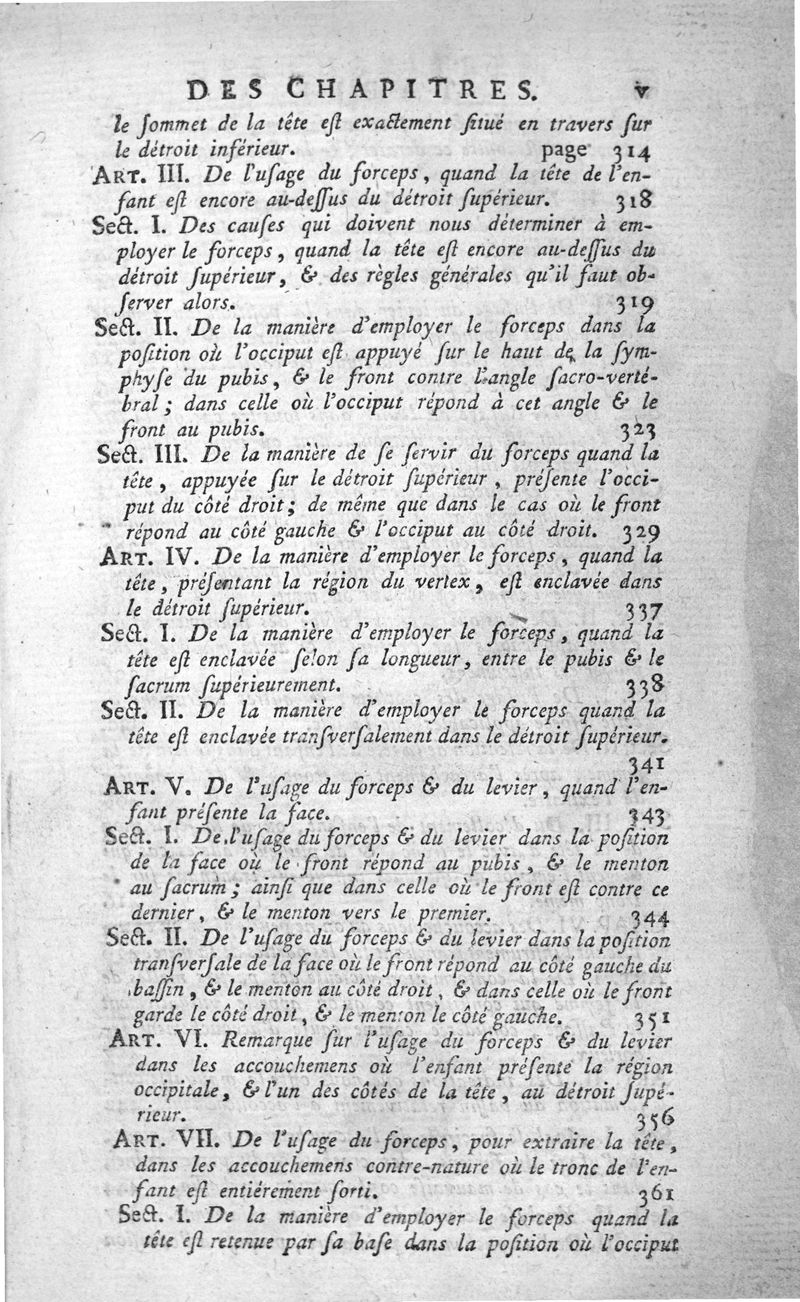 DES CHAPITRES. v
le ſommet de la tête eſt exactement ſitué en travers ſur
le détroit inférieur. page 314
ART. III. De l'uſage du forceps, quand la tête de l'en-
fant eſt encore au-deſſus du détroit ſupérieur. 318
Sect. I. Des cauſes qui doivent nous déterminer à em-
ployer le forceps, quand la tête eſt encore au-deſſus du
détroit ſupérieur, & des règles générales qu'il faut ob-
ſerver alors. 319
Sect. II. De la manière d'employer le forceps dans la
poſition où l'occiput eſt appuyé ſur le haut de la ſym-
phyſe du pubis, & le front contre l'angle ſacro-verté-
bral; dans celle où l'occiput répond à cet angle & le
front au pubis. 323
Sect. III. De la manière de ſe ſervir du forceps quand la
tête, appuyée ſur le détroit ſupérieur, préſente l'occi-
put du côté droit; de même que dans le cas où le front
répond au côté gauche & l'occiput au côté droit. 329
ART. IV. De la manière d'employer le forceps, quand la
tête, préſentant la région du vertex, eſt enclavée dans
le détroit ſupérieur. 337
Sect. I. De la manière d'employer le forceps, quand la
tête eſt enclavée ſelon ſa longueur, entre le pubis & le
ſacrum ſupérieurement. 338
Sect. II. De la manière d'employer le forceps quand la
tête eſt enclavée tranſverſalement dans le détroit ſupérieur.
341
ART. V. De l'uſage du forceps & du levier, quand l'en-
fant préſente la face. 343
Sect. I. De l'uſage du forceps & du levier dans la poſition
de la face où le front répond au pubis, & le menton
au ſacrum; ainſi que dans celle où le front eſt contre ce
dernier, & le menton vers le premier. 344
Sect. II. De l'uſage du forceps & du levier dans la poſition
tranſverſale de la face où le front répond au côté gauche du
baſſin, & le menton au côté droit, & dans celle où le front
garde le côté droit, & le menton le côté gauche. 351
ART. VI. Remarque ſur l'uſage du forceps & du levier
dans les accouchemens où l'enfant préſente la région
occipitale, & l'un des côtés de la tête, au détroit ſupé-
rieur. 356
ART. VII. De l'uſage du forceps, pour extraire la tête,
dans les accouchemens contre-nature où le tronc de l'en-
fant eſt entiérement ſorti. 361
Sect. I. De la manière d'employer le forceps quand la
tête eſt retenue par ſa baſe dans la poſition où l'occiput